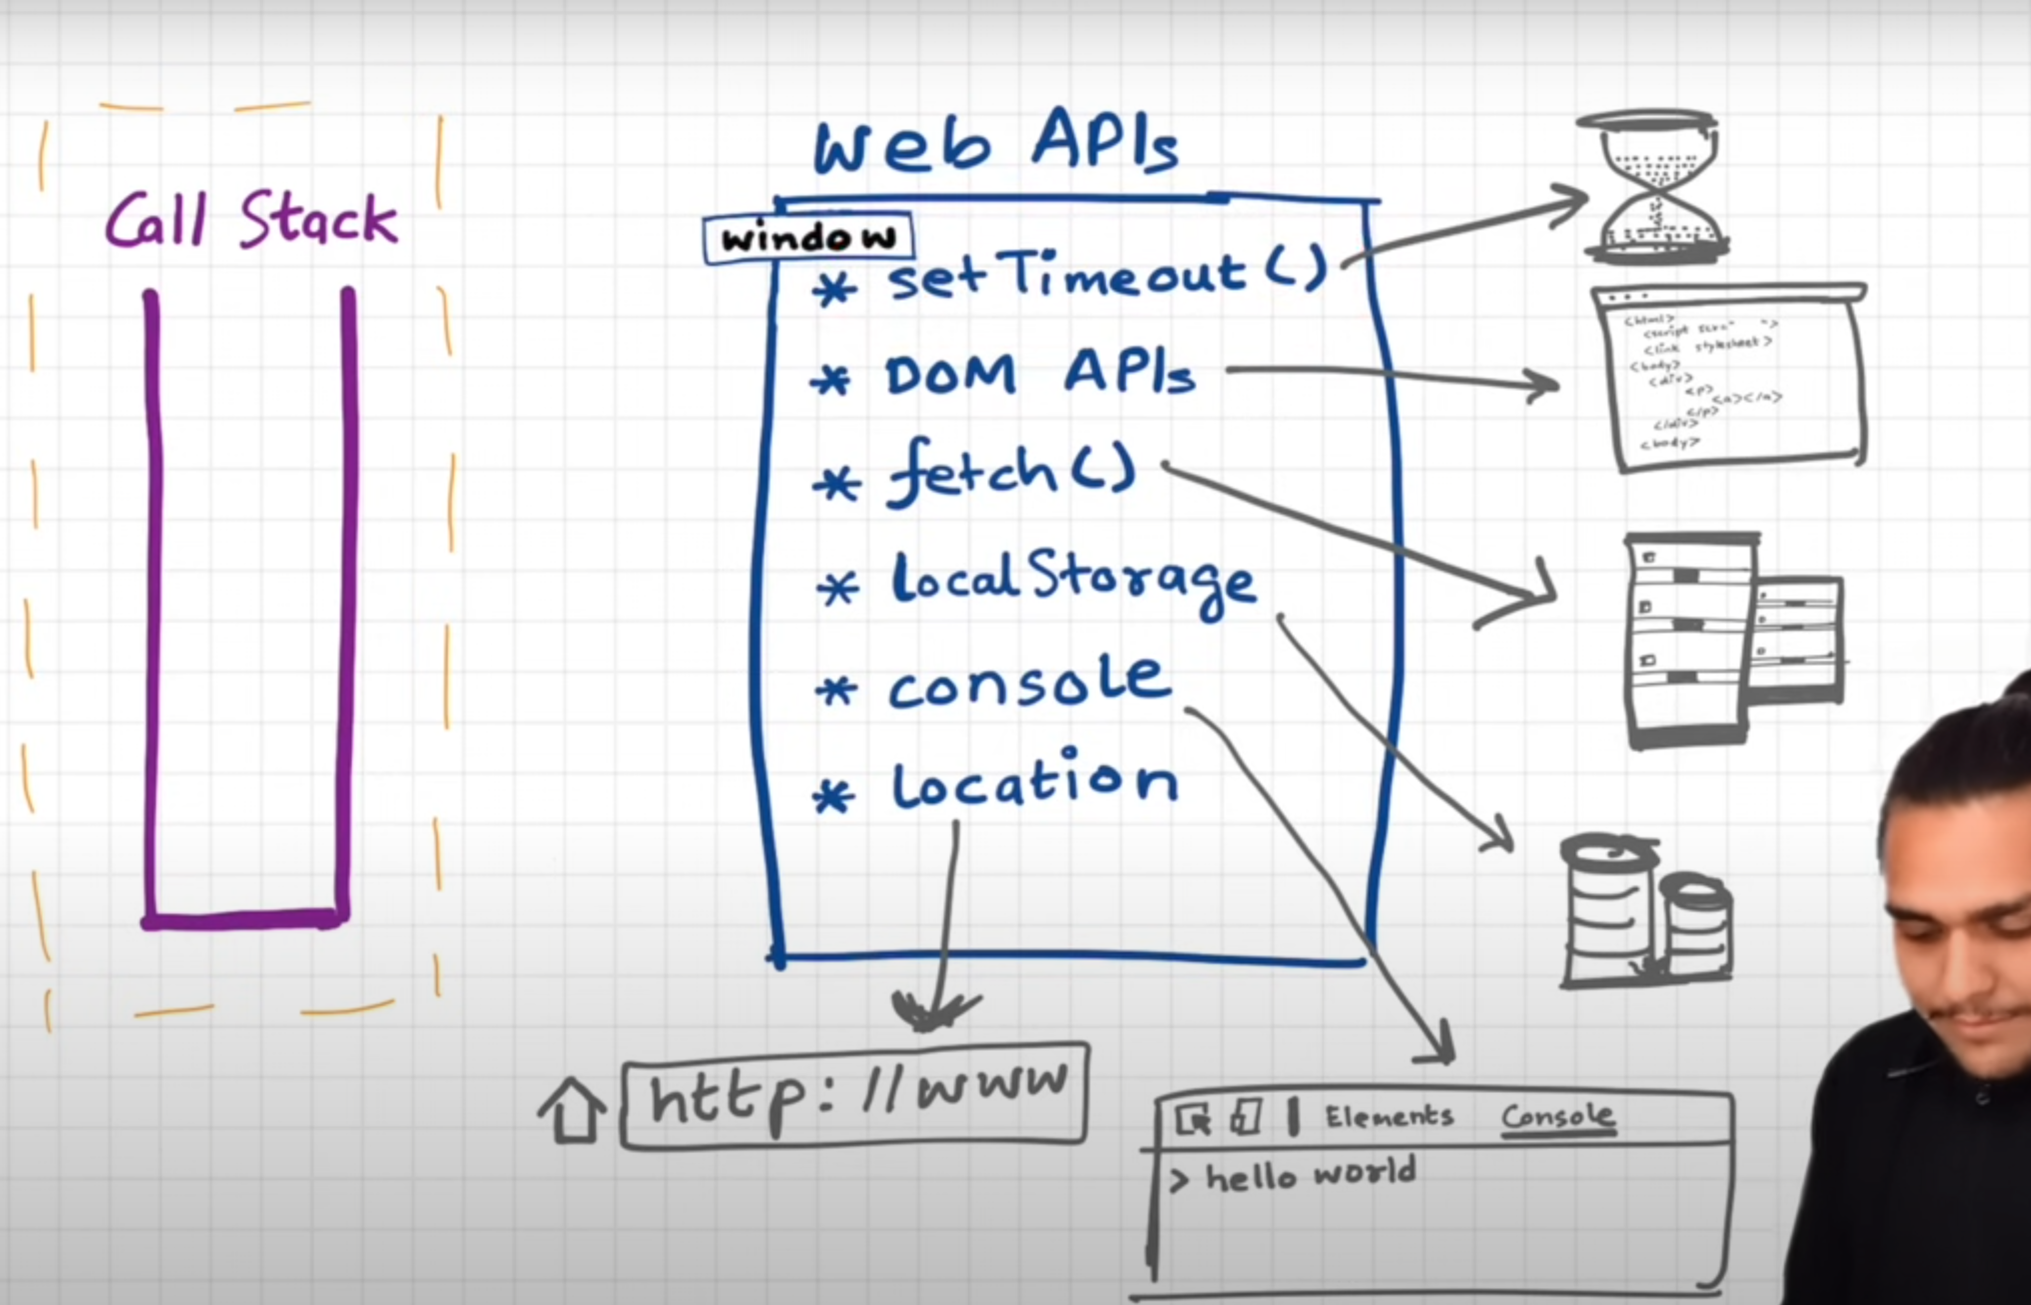 Call Stack
Web APIs
window
* setTimeout()
* DOM APIs
* fetch()
* localStorage
* console
* location
<html>
<script scra- ->
<link stylesheet>
<body>
<div>
<p>
<a></a>
</p>
</div>
<body>
http://www
Elements Console
> hello world